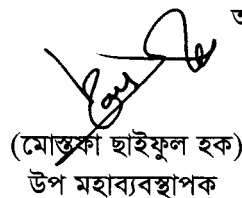 (মোস্তফা ছাইফুল হক)
উপ মহাব্যবস্থাপক